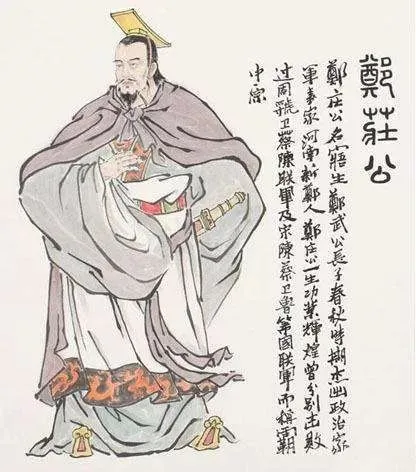 鄭莊公
鄭庄公名寤生鄭武公長子春秋時期杰出政治家
軍事家河南新鄭人鄭庄公一生功業輝煌曾分別击敗
过周虢卫蔡陳联軍及宋陳蔡卫魯等国联軍而称霸
中原